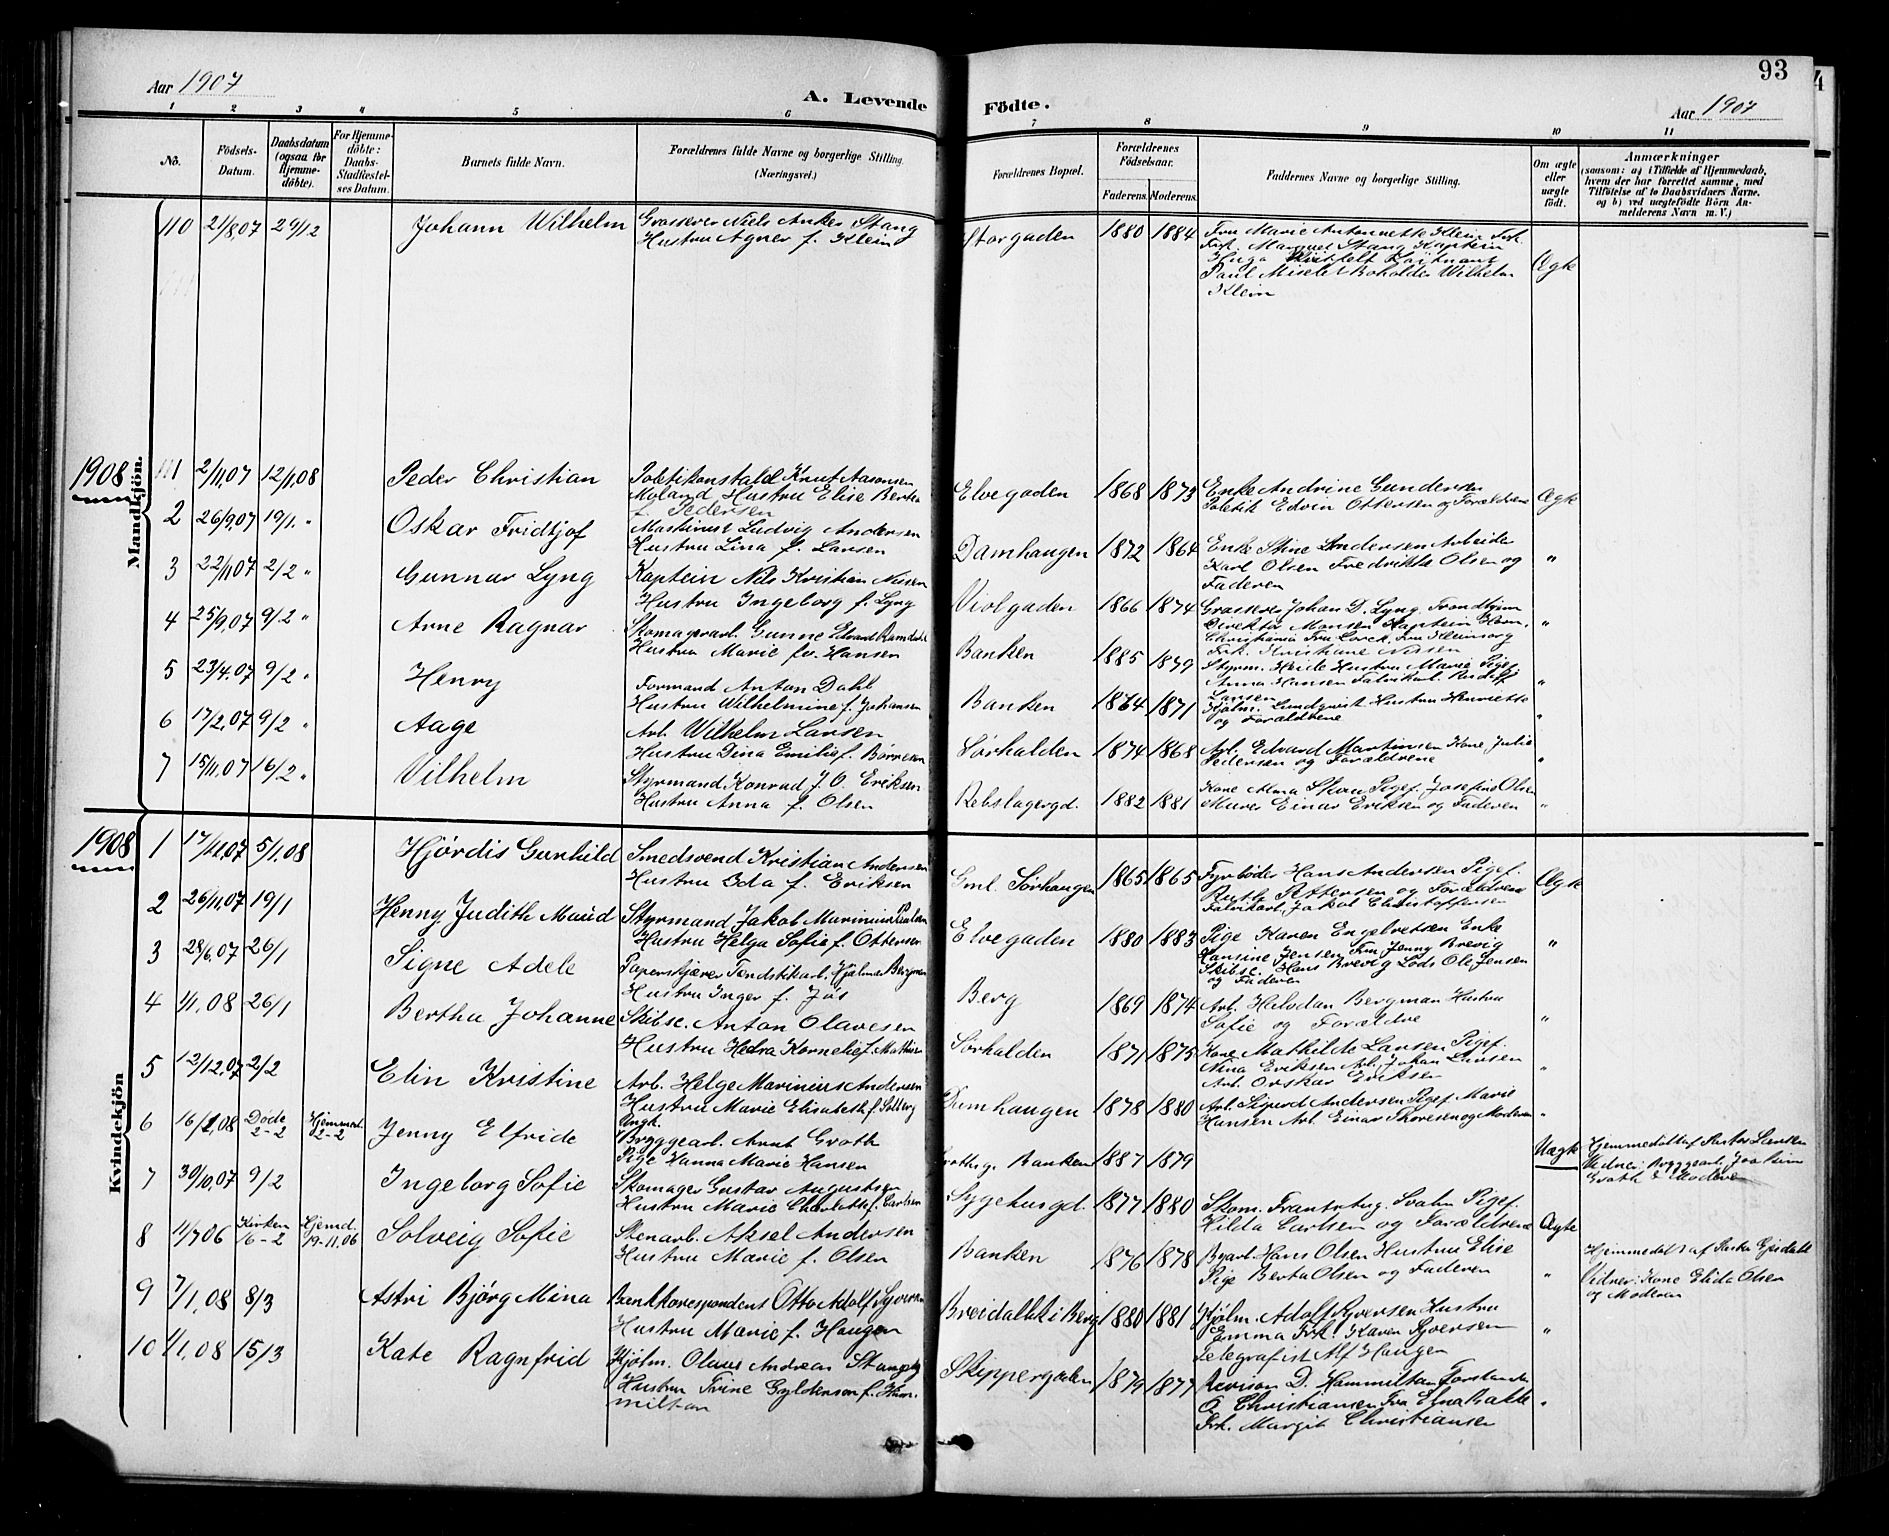 Aar 1907
A. Levende Födte.
93
Aar 1907
1 2 3 4 5 6 7 8 9 10 11
No.
Födsels-Datum.
Daabsdatum (ogsaa for Hjemmedöbte).
For Hjemmedöbte: Daabs-Stadfæstelses Datum.
Barnets fulde Navn.
Forældrenes fulde Navne og borgerlige Stilling. (Næringsvei.)
Forældrenes Bopæl.
Forældrenes Födselsaar.
Faderens. Moderens.
Faddernes Navne og borgerlige Stilling.
Om ægte eller uægte födt.
Anmærkninger
(saasom: a) i Tilfælde af Hjemmedaab,
hvem der har forrettet samme, med
Tilføielse af to Daabsvidners Navne,
og b) ved uægtefödte Börn An-
melderens Navn m. V.)
Mandkjön.
110 21/8,07 29/12 Johann Wilhelm Grosserer Niels Anker Stang
Hustru Agnes f. Klein
Storgaden 1880 1884 Fru Marie Antonnette Klein Frk.
Frk. Margret Stang Kaptein
Paul Boholder Wilhelm
Klein
Ægte
1908
1 2/11,07 12/1,08 Peder Christian Politikonstabel Knut Aasonsen
Moland Hustru Elise Berta
f. Pedersen
Elvegaden 1868 1873 Enke Andrine Gundersen
Politik Edvin Ottersen og Forældrene
Ægte
2 26/9,07 19/1 " Oskar Fridtjof Maskinist Ludvig Andersen
Hustru Lina f. Larsen
Damhaugen 1872 1864 Enke Stine Andersen Arbeider
Karl Olsen Fredrikke Olsen og
Faderen
"
3 22/11,07 2/2 " Gunnar Lyng Kaptein Nils Kristian Nilsen
Hustru Ingeborg f. Lyng
Violgaden 1866 1874 Grosserer Johan D. Lyng, Trondhjem
Direktør Monsen Kaptein
Christiania Fru
Frk. Kristiane Nilsen
"
4 25/9,07 9/2 " Arne Ragnar Skomagerarb. Gunne Edvard Ramdahl
Hustru Marie f. Hansen
Banken 1885 1879 Styrm. Heide Hustru Marie Pigef.
Anna Hansen Fabrikarb. Rudolf
Larsen
"
5 23/4,07 9/2 " Henry Formand Anton Dahl
Hustru Wilhelmine f. Johansen
Banken 1864 1871 Hjølm. Lundqvist Hustru Henriette
og Forældrene
"
6 17/2,07 9/2 " Aage Arb. Wilhelm Larsen
Hustru Dina Emilie f. Børresen
Sørhalden 1874 1868 Arb. Edvard Martinsen Kone Julie
Pedersen og Forældrene
"
7 15/11,07 16/2 " Vilhelm Styrmand Konrad J. O. Eriksen
Hustru Anna f. Olsen
Rebslagergd. 1882 1881 Kone Alma Pigef. Josefine Olsen
Murer Einar Eriksen og Faderen
"
Kvindekjön
1908
1 17/11,07 5/1,08 Hjørdis Gunhild Smedsvend Kristian Andersen
Hustru Ida f. Eriksen
Gml. Sørhaugen 1865 1865 Fyrbøder Hans Andersen Pigef.
Ruth Pettersen og Forældrene
Fabrikarb. Jakob Christoffersen
Ægte
2 26/11,07 19/1 Henny Judith Maud Styrmand Jakob Marinius Paulsen
Hustru Helga Sofie f. Ottersen
Elvegaden 1880 1883 Pige Karen Engebretsen Enke
Hansine Jensen Fru Jenny Brevig
Skibsc. Hans Brevig Lods Ole Jensen
og Faderen
"
3 28/6,07 26/1 Signe Adele Paperskjærer Tændstikarb. Hjalmar Bergman
Hustru Inger f. Jøs
Berg 1869 1874 Arb. Halvdan Bergman Hustru
Sofie og Forældre
"
4 1/1,08 26/1 Bertha Johanne Skibsc. Anton Olavesen
Hustru Hedva Kornelie f. Mathisen
Sørhalden 1871 1875 Kone Mathilde Larsen Pigef.
Nina Eriksen Arb. Johan Larsen
Arb. Orskar Eriksen
"
5 12/12,07 2/2 Elin Kristine Arb. Helge Marinius Andersen
Hustru Marie Elisabeth f. Solberg
Damhaugen 1878 1880 Arb. Sigurd Andersen Pigef. Marie
Hansen Arb. Einar Thoresen og Moderen
"
6 16/1,08 Døde 2-2 Hjemmed. 2-2 Jenny Elfride Ungk.
Bryggearb. Arnt Groth
Pige Hanna Marie Hansen
Banken 1887 1879
Uægte
Hjemmedøbt af Pastor Larsen
Vidner: Bryggearb. Joakim
Groth & Moderen
7 30/10,07 9/2 Ingeborg Sofie Skomager Gustav Augustsen
Hustru Marie Charlotte f. Carlsen
Sygehusgd. 1877 1880 Skom. Frantz Aug. Svahn Pigef.
Hilda Carlsen og Forældrene
Ægte
8 11/7 06 Kirken 16-2 Hjemd. 19-11.06 Solveig Sofie Stenarb. Aksel Andersen
Hustru Marie f. Olsen
Banken 1876 1878 Byarb. Hans Olsen Hustru Elise
Pige Berta Olsen og Faderen
"
Hjemmedøbt af Pastor
Vidner: Kone Elida Olsen
og Moderen
9 7/1,08 8/3 Astri Bjørg Mina Bankkorespondent Otto Adolf Syversen
Hustru Marie f. Haugen
Breidablik i Berg 1880 1881 Hjølm. Adolf Syversen Hustru
Emma Frk. Karen Syversen
Telegrafist Alf Haugen
"
10 1/1,08 15/3 Kate Ragnfrid Hjølm. Olaus Andreas
Hustru Trine Gyldenson f. Ham-
milton
Skippergaden 1879 1877 Revison D. Hammilton Forstander
O. Christiansen Fru Elna Bakke
Frk. Margit Christiansen
"